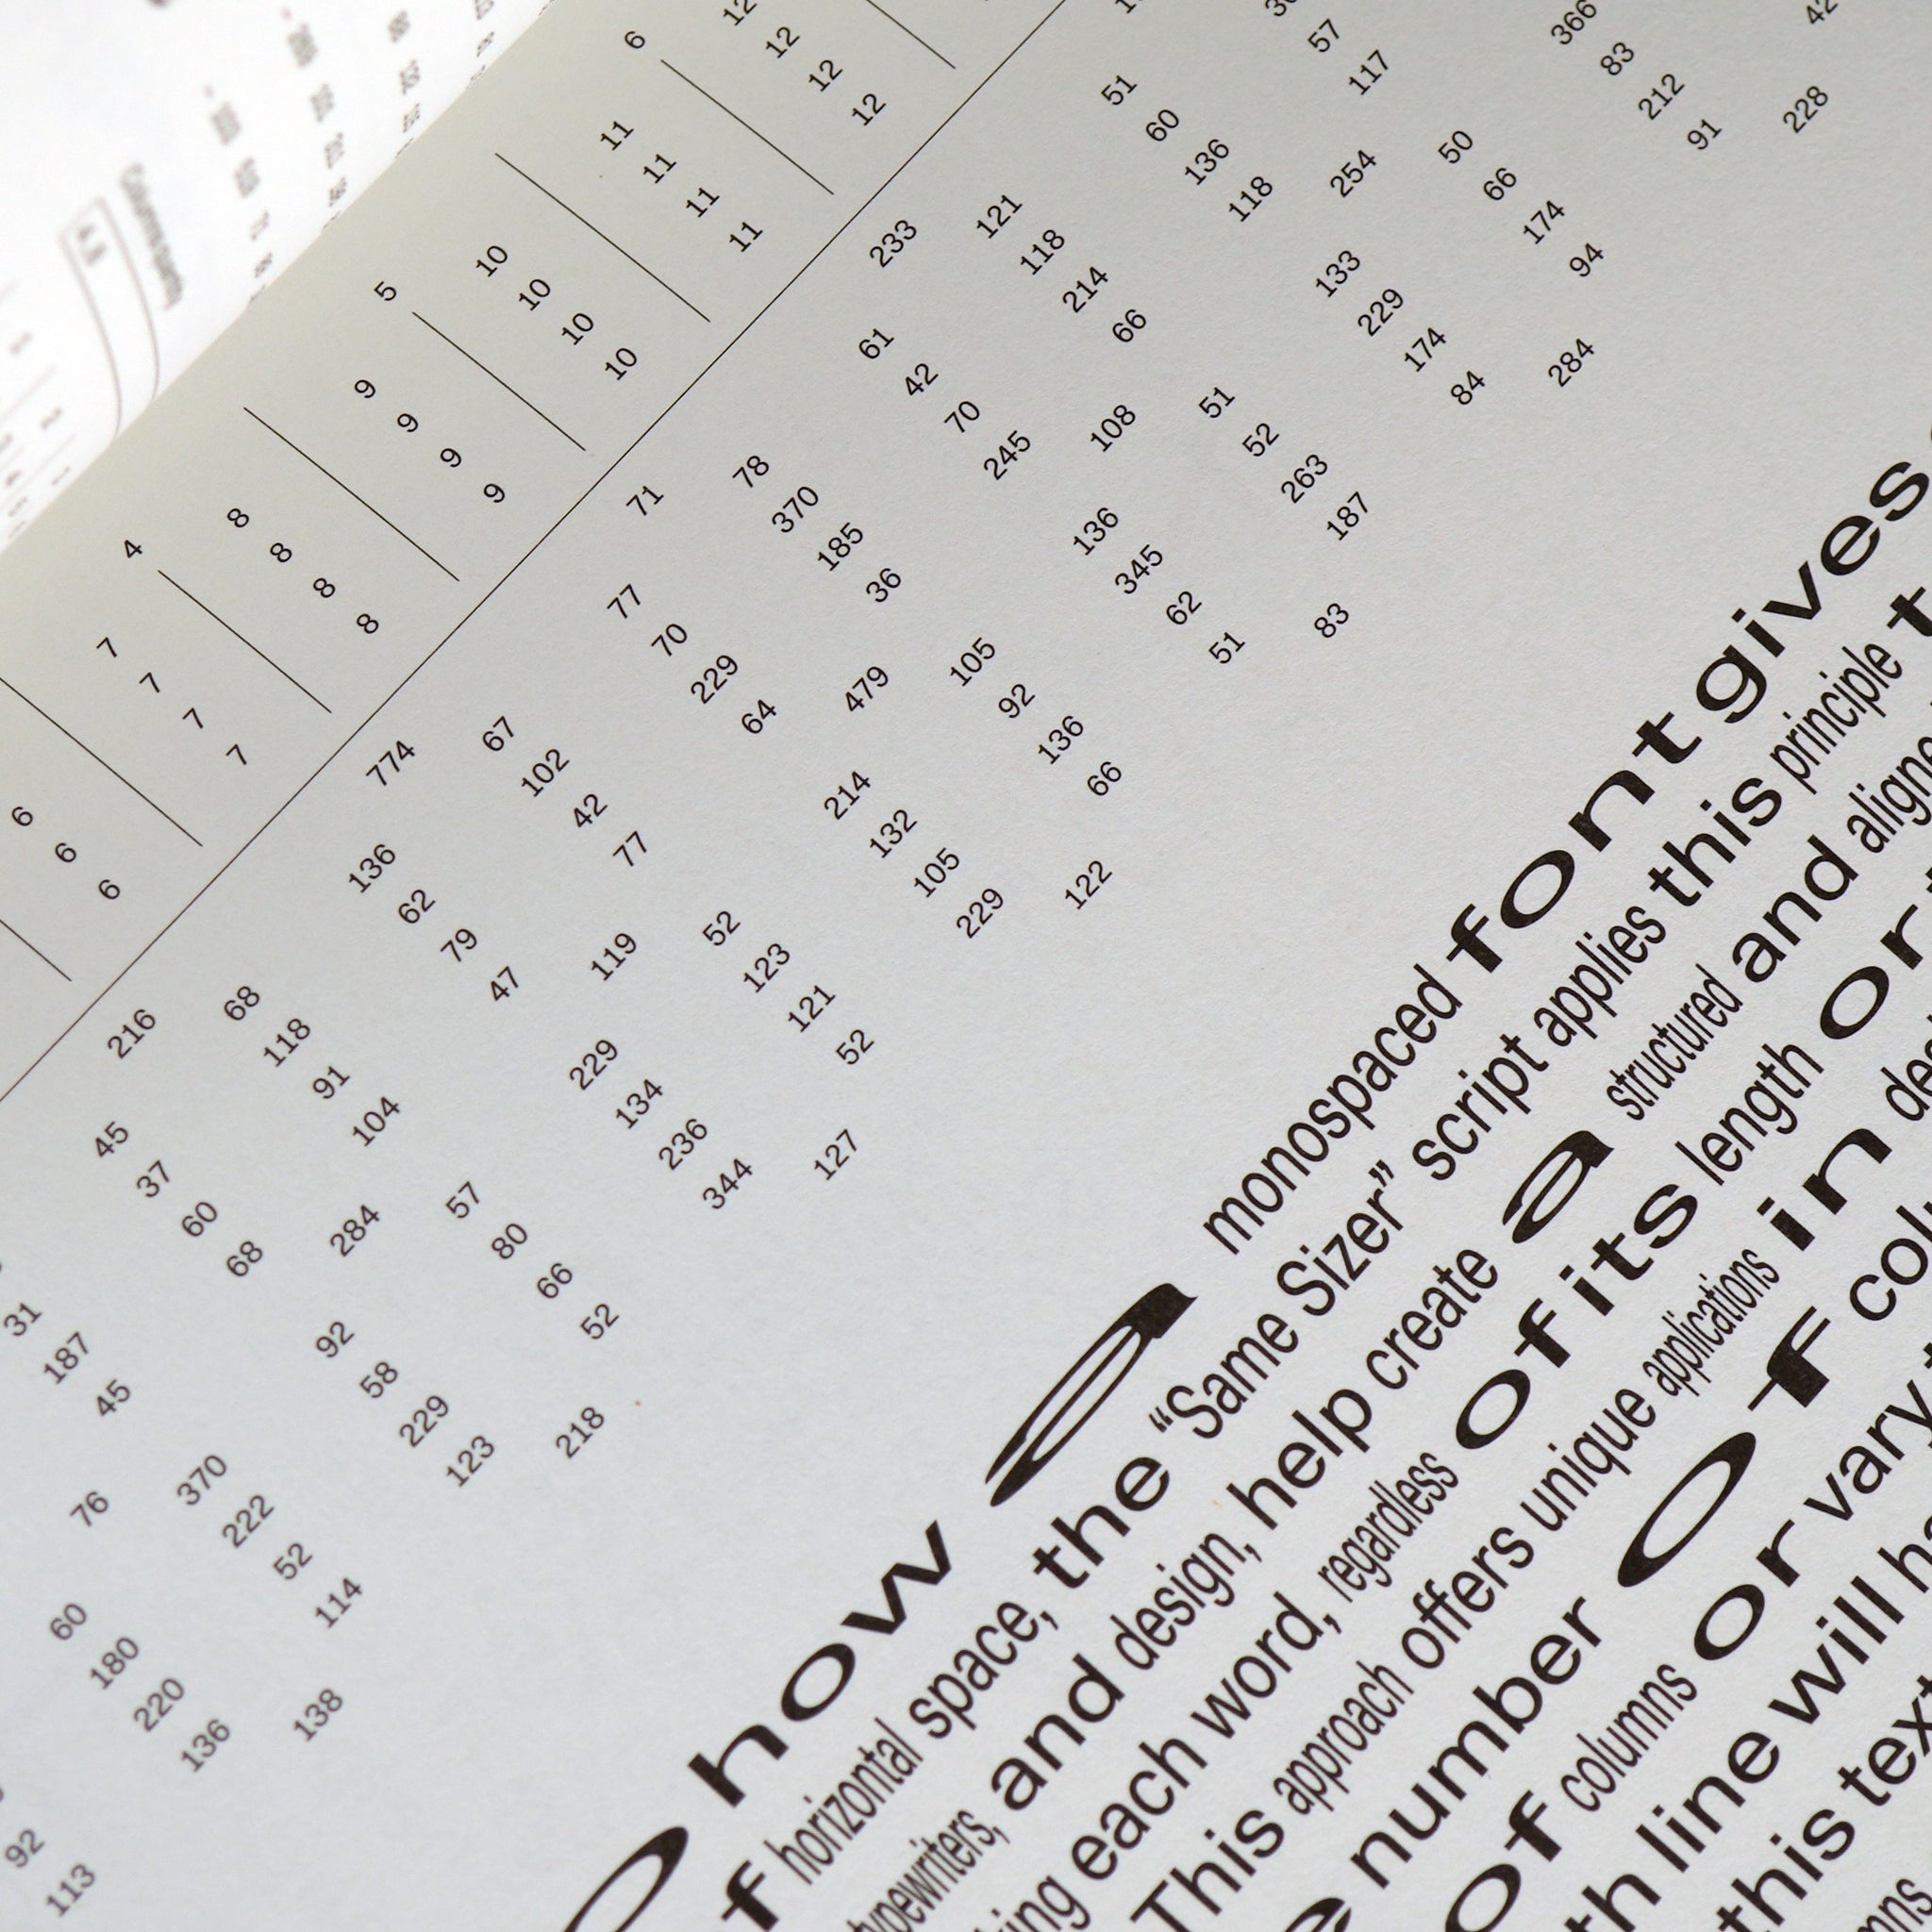 4 5 6
7 8 9 10 11 12
6 7 8 9 10 11 12
6 7 8 9 10 11 12
6 7 8 9 10 11 12
216 774 71 233
45 68 136 67 77 78 61 121 51
31 37 118 62 102 70 370 42 118 60
187 60 91 79 42 229 185 70 214 136 57
45 68 104 47 77 64 36 245 66 118 117
76 284 119 479 108 254
60 370 92 57 229 52 214 105 136 51 133 50 366
180 222 58 80 134 123 132 92 345 52 229 66 83
92 220 52 229 66 236 121 105 136 62 263 174 174 212
113 136 114 123 52 344 52 229 66 51 187 84 94 91 42
138 218 127 122 83 284 228
how a monospaced font gives
horizontal space, the “Same Sizer” script applies this principle
typewriters, and design, help create a structured and
each word, regardless of its length or
This approach offers unique applications in
number of
of columns or vary
line will
this text